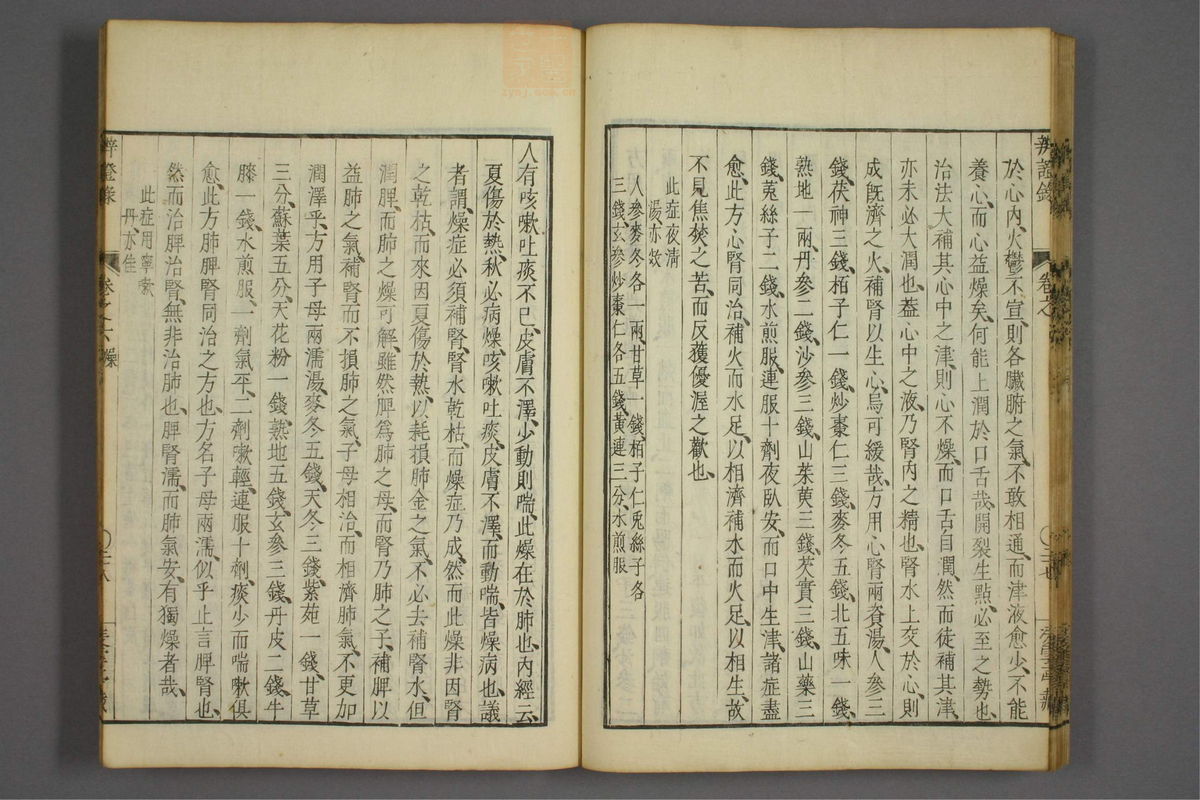 辨證錄 卷之
於心內火鬱不宣則各臟腑之氣不敢相通而津液愈少不能
養心而心益燥矣何能上潤於口舌哉開裂生點必至之勢也
治法大補其心中之津則心不燥而口舌自潤然而徒補其津
亦未必大潤也蓋心中之液乃腎內之精也腎水上交於心則
成旣濟之火補腎以生心烏可緩哉方用心腎兩資湯人參三
錢茯神三錢栢子仁一錢炒棗仁三錢麥冬五錢北五味一錢
熟地一兩丹參二錢沙參三錢山茱萸三錢芡實三錢山藥三
錢菟絲子二錢水煎服連服十劑夜臥安而口中生津諸症盡
愈此方心腎同治補火而水足以相濟補水而火足以相生故
不見焦焚之苦而反獲優渥之歡也
此症夜清
湯亦效
人參麥冬各一兩甘草一錢栢子仁兎絲子各
三錢玄參炒棗仁各五錢黃連三分水煎服
人有咳嗽吐痰不已皮膚不澤少動則喘此燥在於肺也內經云
夏傷於熱秋必病燥咳嗽吐痰皮膚不澤而動喘皆燥病也議
者謂燥症必須補腎腎水乾枯而燥症乃成然而此燥非因腎
之乾枯而來因夏傷於熱以耗損肺金之氣不必去補腎水但
潤脾而肺之燥可解雖然脾爲肺之母而腎乃肺之子補脾以
益肺之氣補腎而不損肺之氣子母相治而相濟肺氣不更加
潤澤乎方用子母兩濡湯麥冬五錢天冬三錢紫菀一錢甘草
三分蘇葉五分天花粉一錢熟地五錢玄參三錢丹皮二錢牛
膝一錢水煎服一劑氣平二劑嗽輕連服十劑痰少而喘嗽俱
愈此方肺脾腎同治之方也方名子母兩濡似乎止言脾腎也
然而治脾治腎無非治肺也脾腎濡而肺氣安有獨燥者哉
此症用寧嗽
丹亦佳
辨證錄 卷之六 燥 二八